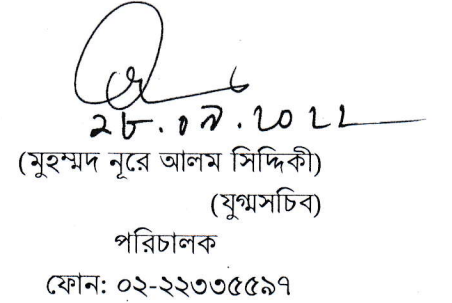 ২৮.০৯.২০২২
(মুহম্মদ নূরে আলম সিদ্দিকী)
(যুগ্মসচিব)
পরিচালক
ফোন: ০২-২২৩৩৫৫৯৭